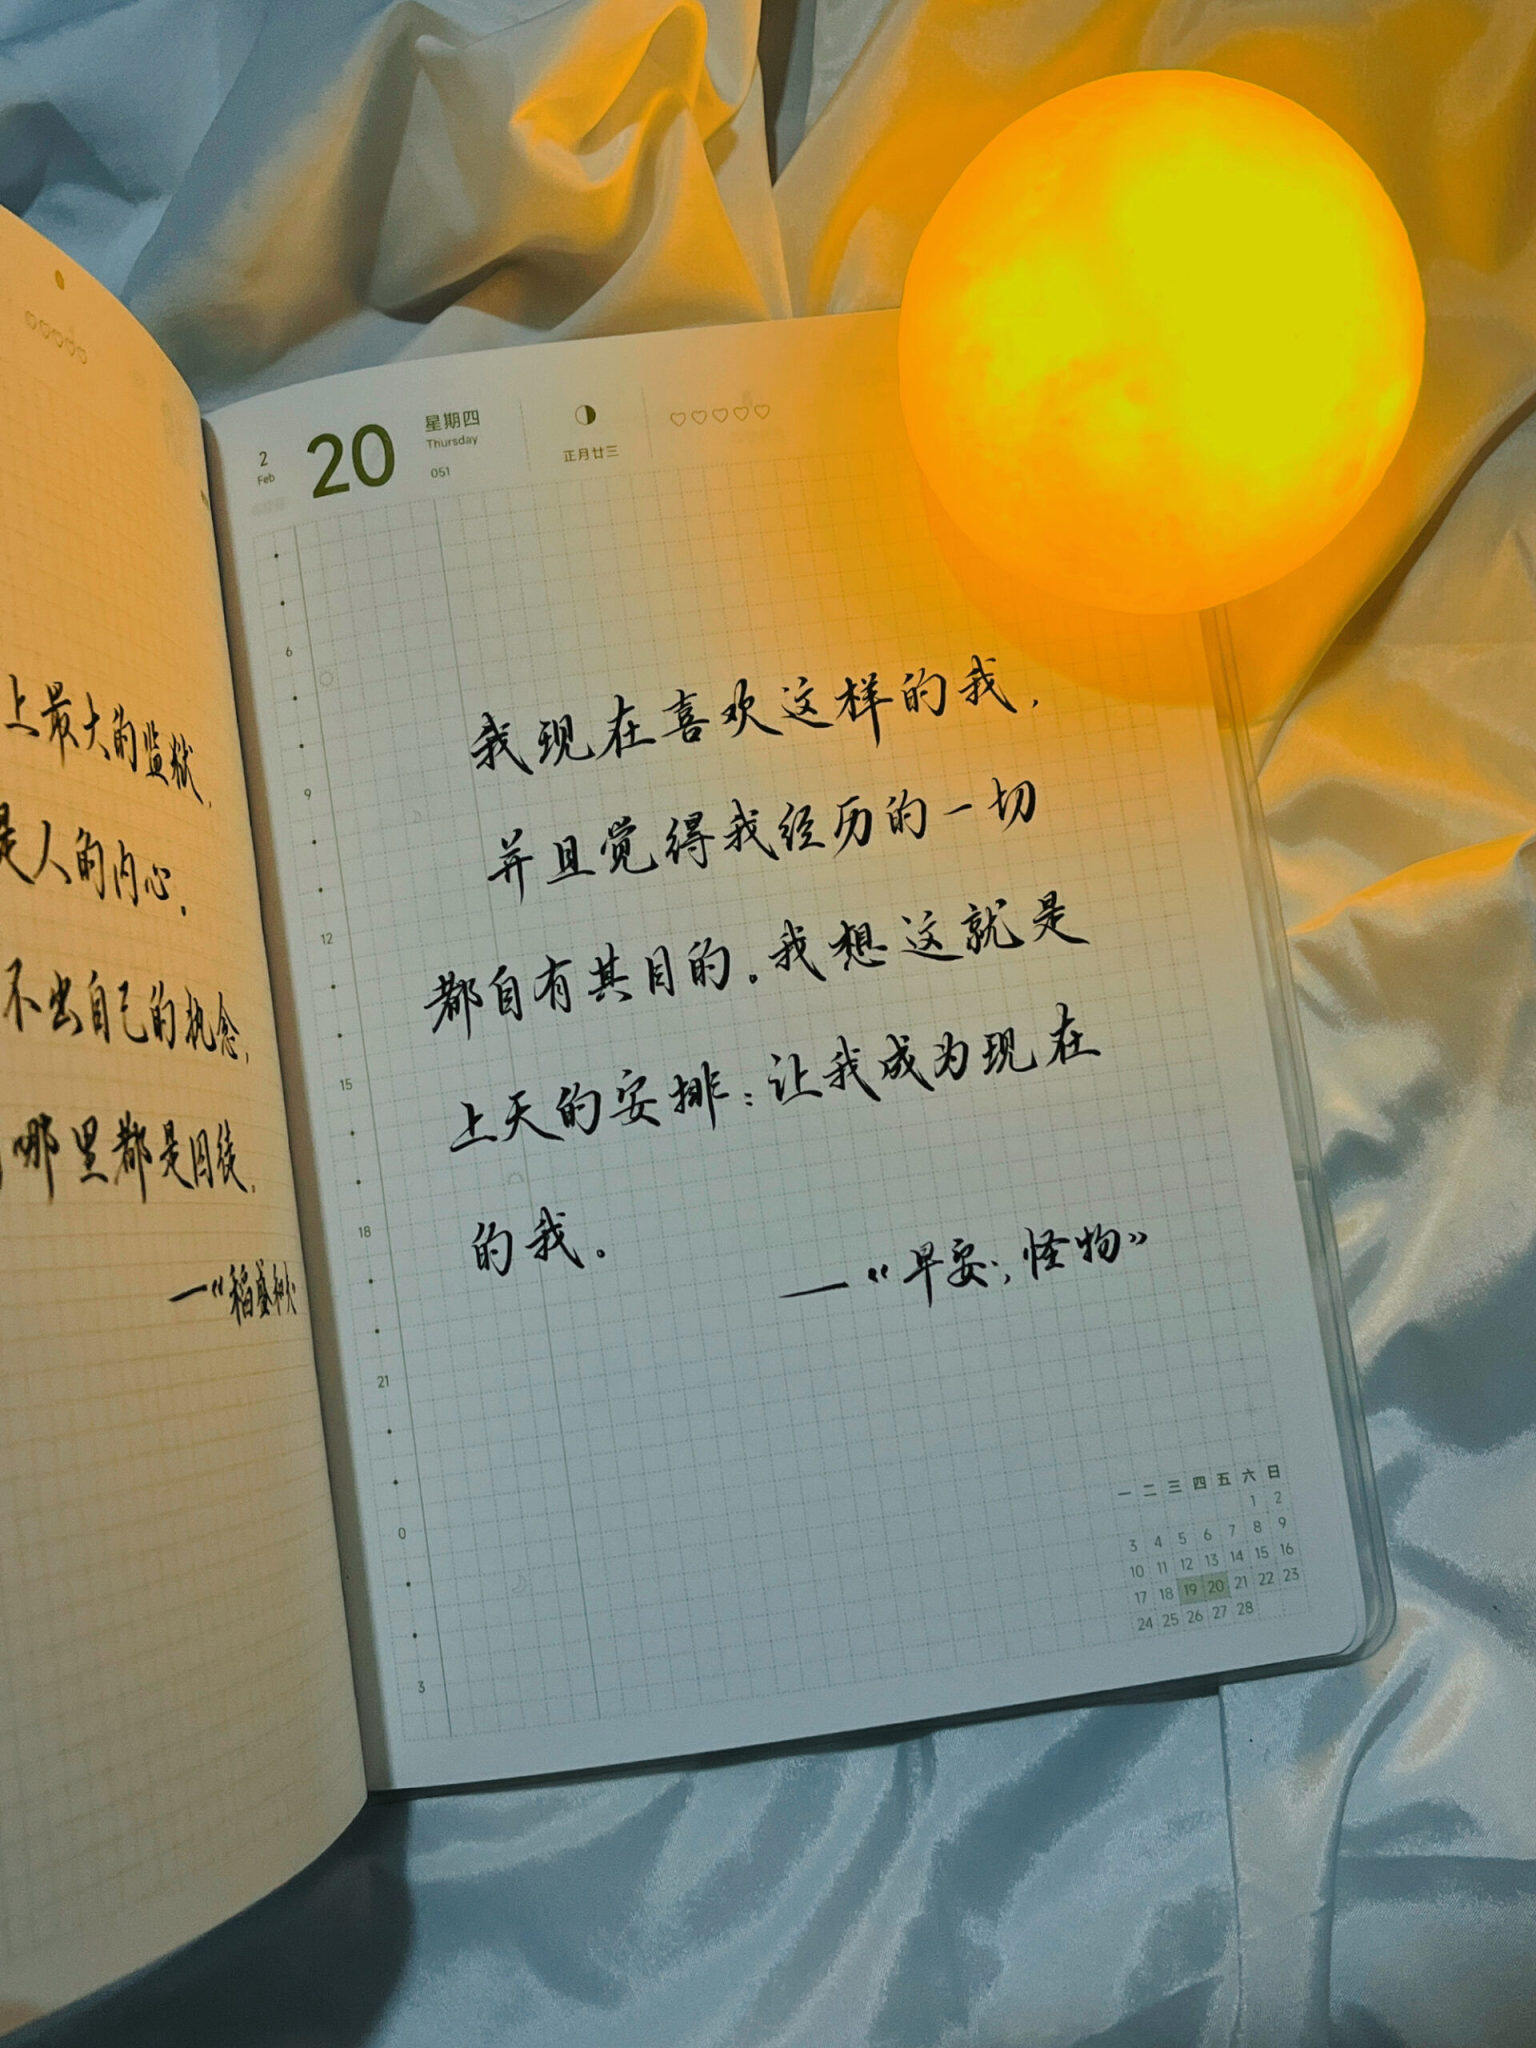 上最大的监狱,
是人的内心.
不出自己的执念,
哪里都是囚徒.
—《稻盛和夫
2
Feb
20
星期四
Thursday
051
正月廿三
我现在喜欢这样的我,
并且觉得我经历的一切
都自有其目的。我想这就是
上天的安排:让我成为现在
的我。
—《早安,怪物》
6
9
12
15
18
21
0
3
一 二 三 四 五 六 日
1 2
3 4 5 6 7 8 9
10 11 12 13 14 15 16
17 18 19 20 21 22 23
24 25 26 27 28